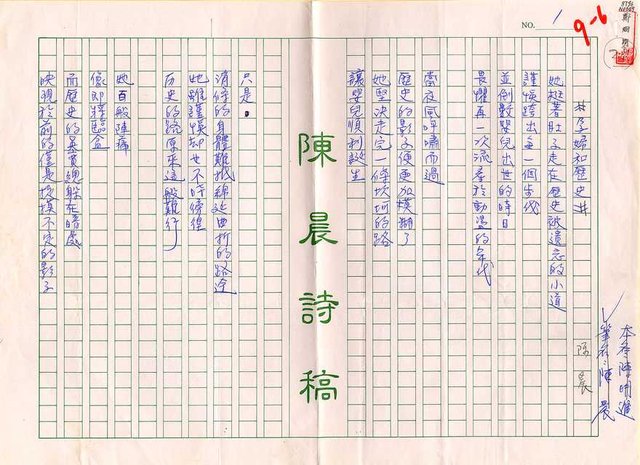 NO. 1
9-6
#孕婦和歷史#
她挺著肚子走在歷史被遺忘的小道
謹慎跨出每一個步伐
並倒數嬰兒出世的時日
畏懼再一次流產於動盪的年代
當夜風呼嘯而過
歷史的影子便更加模糊了
她堅決走完一條坎坷的路
讓嬰兒順利誕生
陳晨詩稿
只是。
消瘦的身體難抵綿延曲折的路途
她雖謹慎却也不時徬徨
历史的路原來這般難行
她百般陣痛
像即將臨盆
而歷史的暴質總躲在暗處
映現於前的僅是捉摸不定的影子
本名陳明進
筆名：陳晨
陳晨